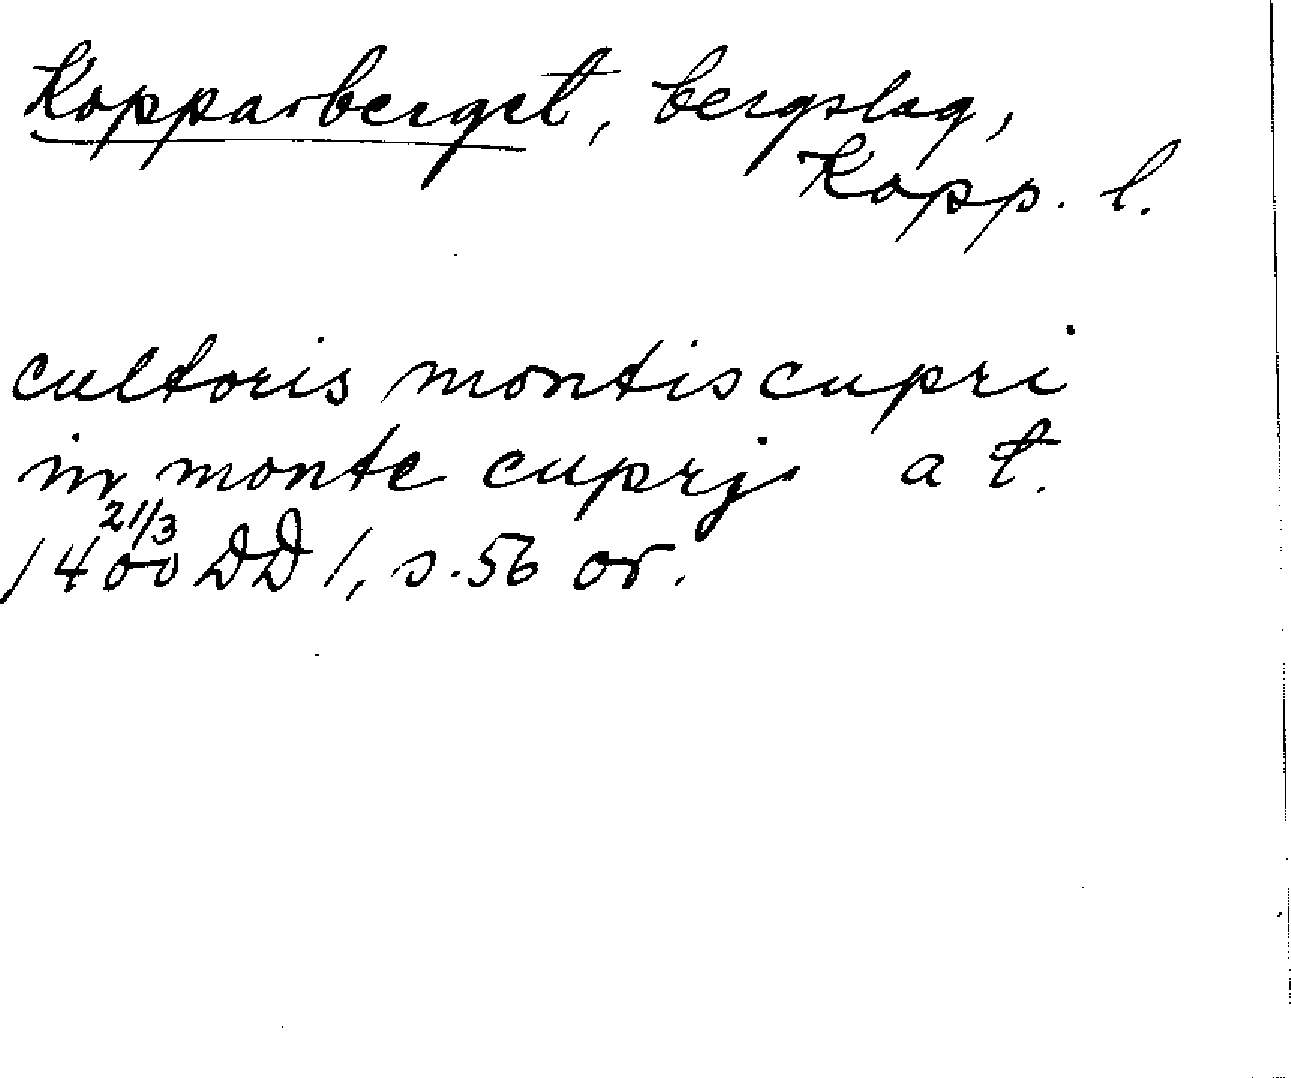 Kopparberget, bergslag,
Kopp. l.
cultoris montiscupri
in monte cuprj a t.
21/3
1400 DD 1, s. 56 or.